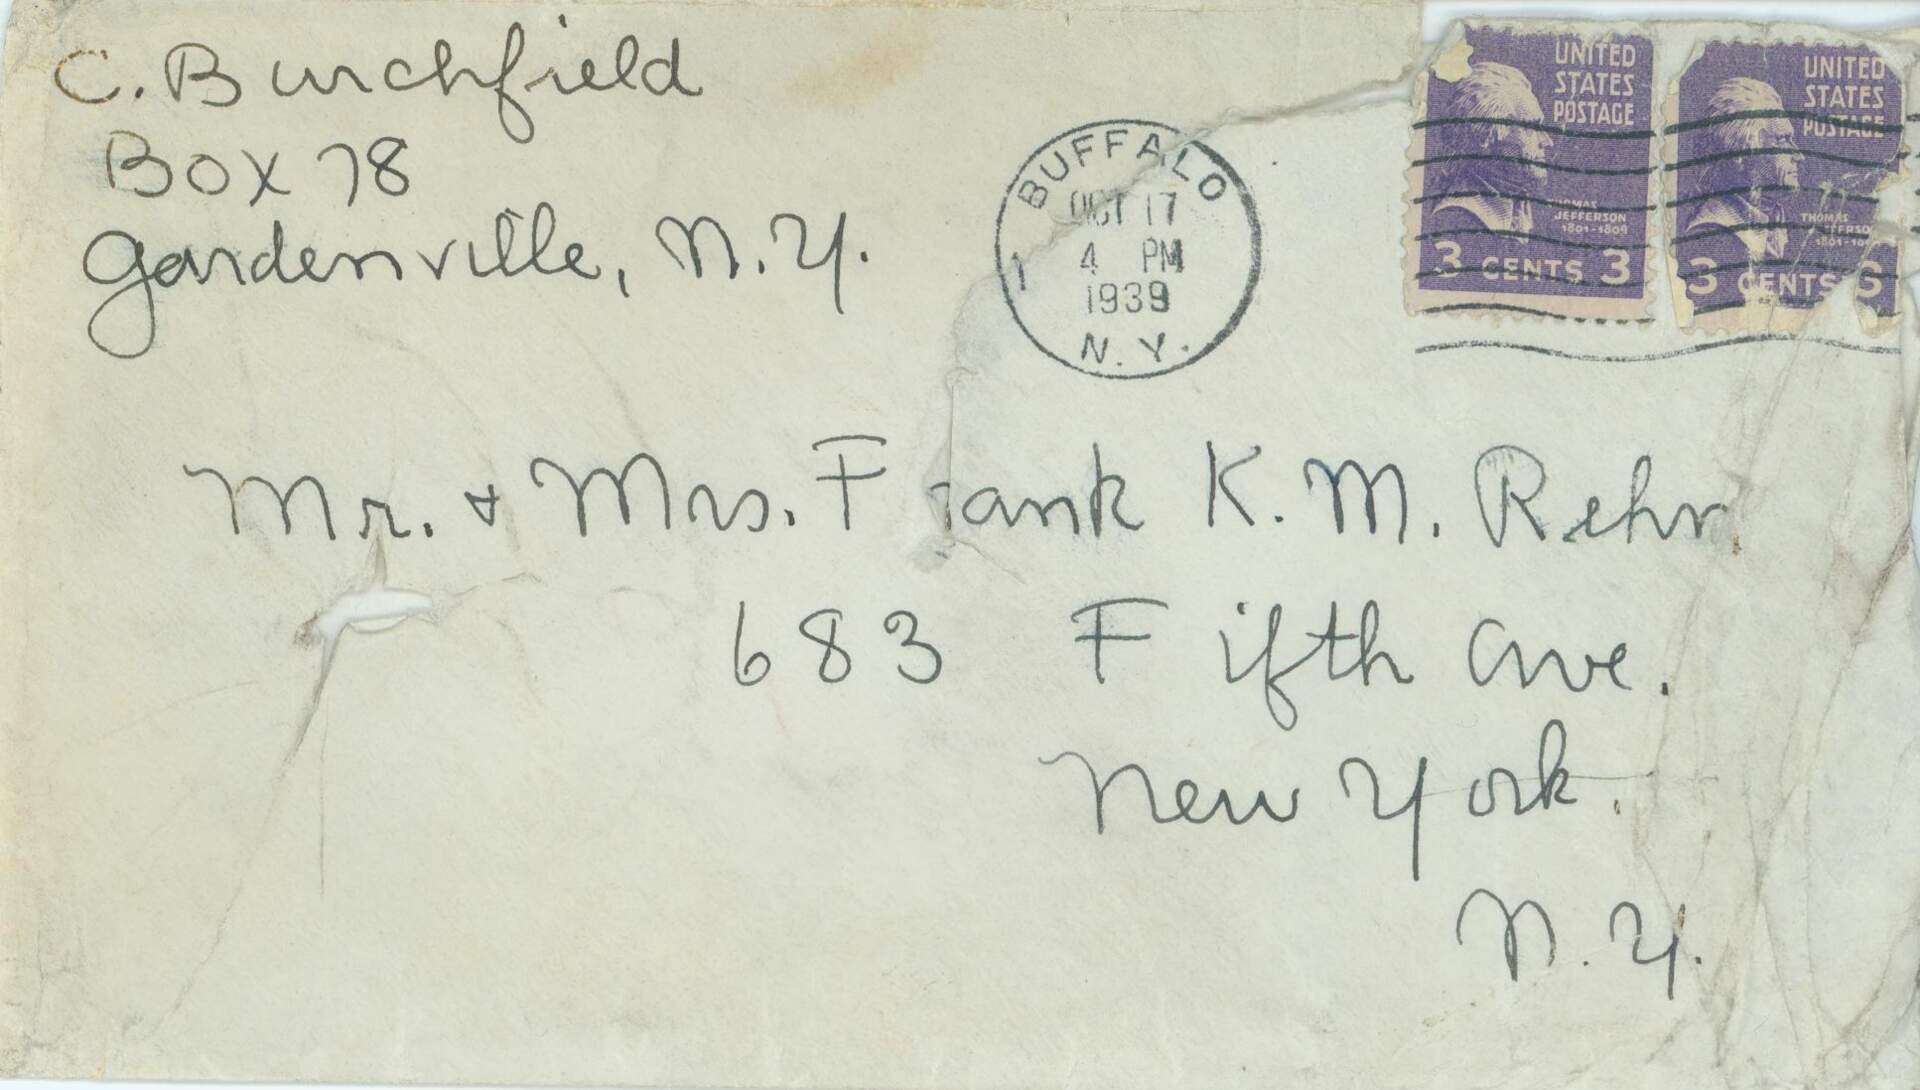 C. Burchfield
Box 78
Gardenville, N.Y.
BUFFALO
OCT 17
4 PM
1939
N.Y.
1
UNITED
STATES
POSTAGE
THOMAS
JEFFERSON
1801-1809
3 CENTS 3
UNITED
STATES
POSTAGE
THOMAS
JEFFERSON
3 CENTS
Mr. + Mrs. Frank K. M. Rehn
683 Fifth Ave.
New York.
N.Y.